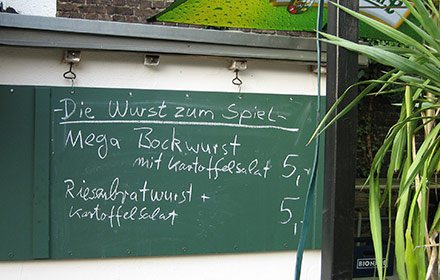 - Die Wurst zum Spiel -
Mega Bockwurst
mit Kartoffelsalat 5,-
Riesenbratwurst +
Kartoffelsalat 5,-
BIONADE